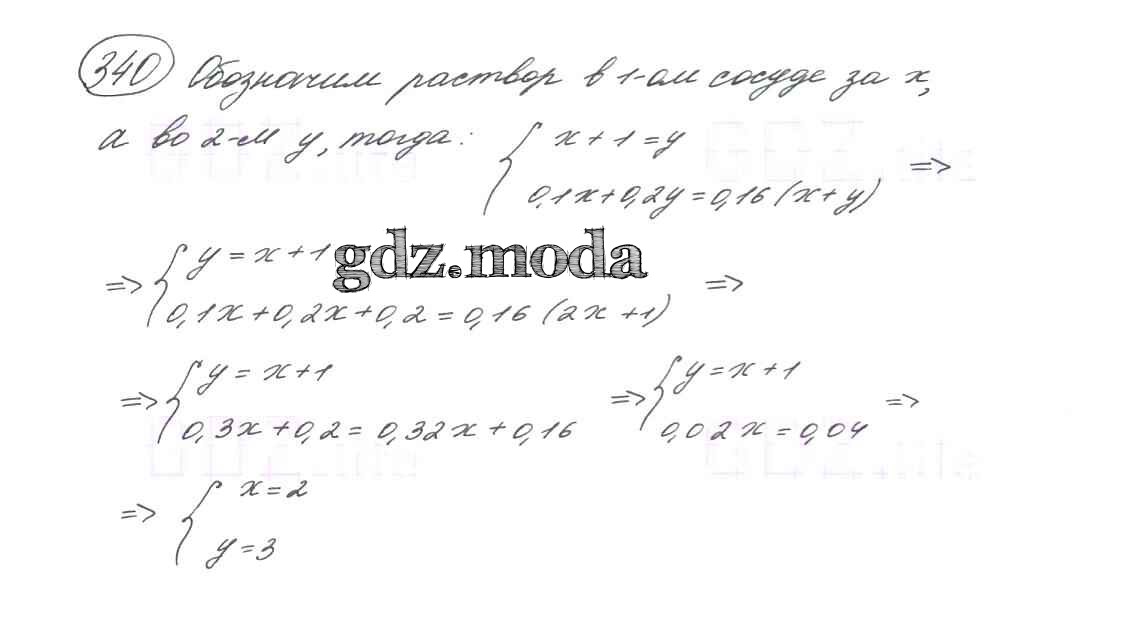 340 Обозначим раствор в 1-ом сосуде за x,
а во 2-м y, тогда: { x + 1 = y
0,1x + 0,2y = 0,16 (x + y) =>
=> { y = x + 1
0,1x + 0,2x + 0,2 = 0,16 (2x + 1) =>
gdz.moda
=> { y = x + 1
0,3x + 0,2 = 0,32x + 0,16
=> { y = x + 1
0,02x = 0,04 =>
=> { x = 2
y = 3